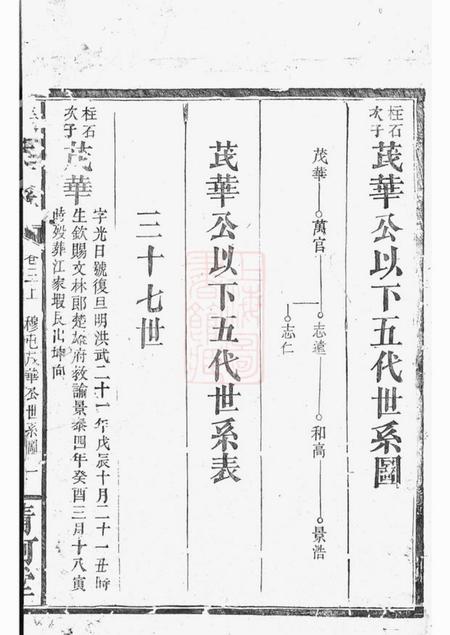 柱石次子 茂華公以下五代世系圖
茂華 萬官 志遠 和高 景浩
志仁
茂華公以下五代世系表
三十七世
柱石次子 茂華
字光日號復旦明洪武二十一年戊辰十月二十一丑時
生欽賜文林郎楚雄府教諭景泰四年癸酉三月十八寅
時歿葬江家瑕長山坤向
卷三上 穆屯茂華公世系圖 一
清河堂